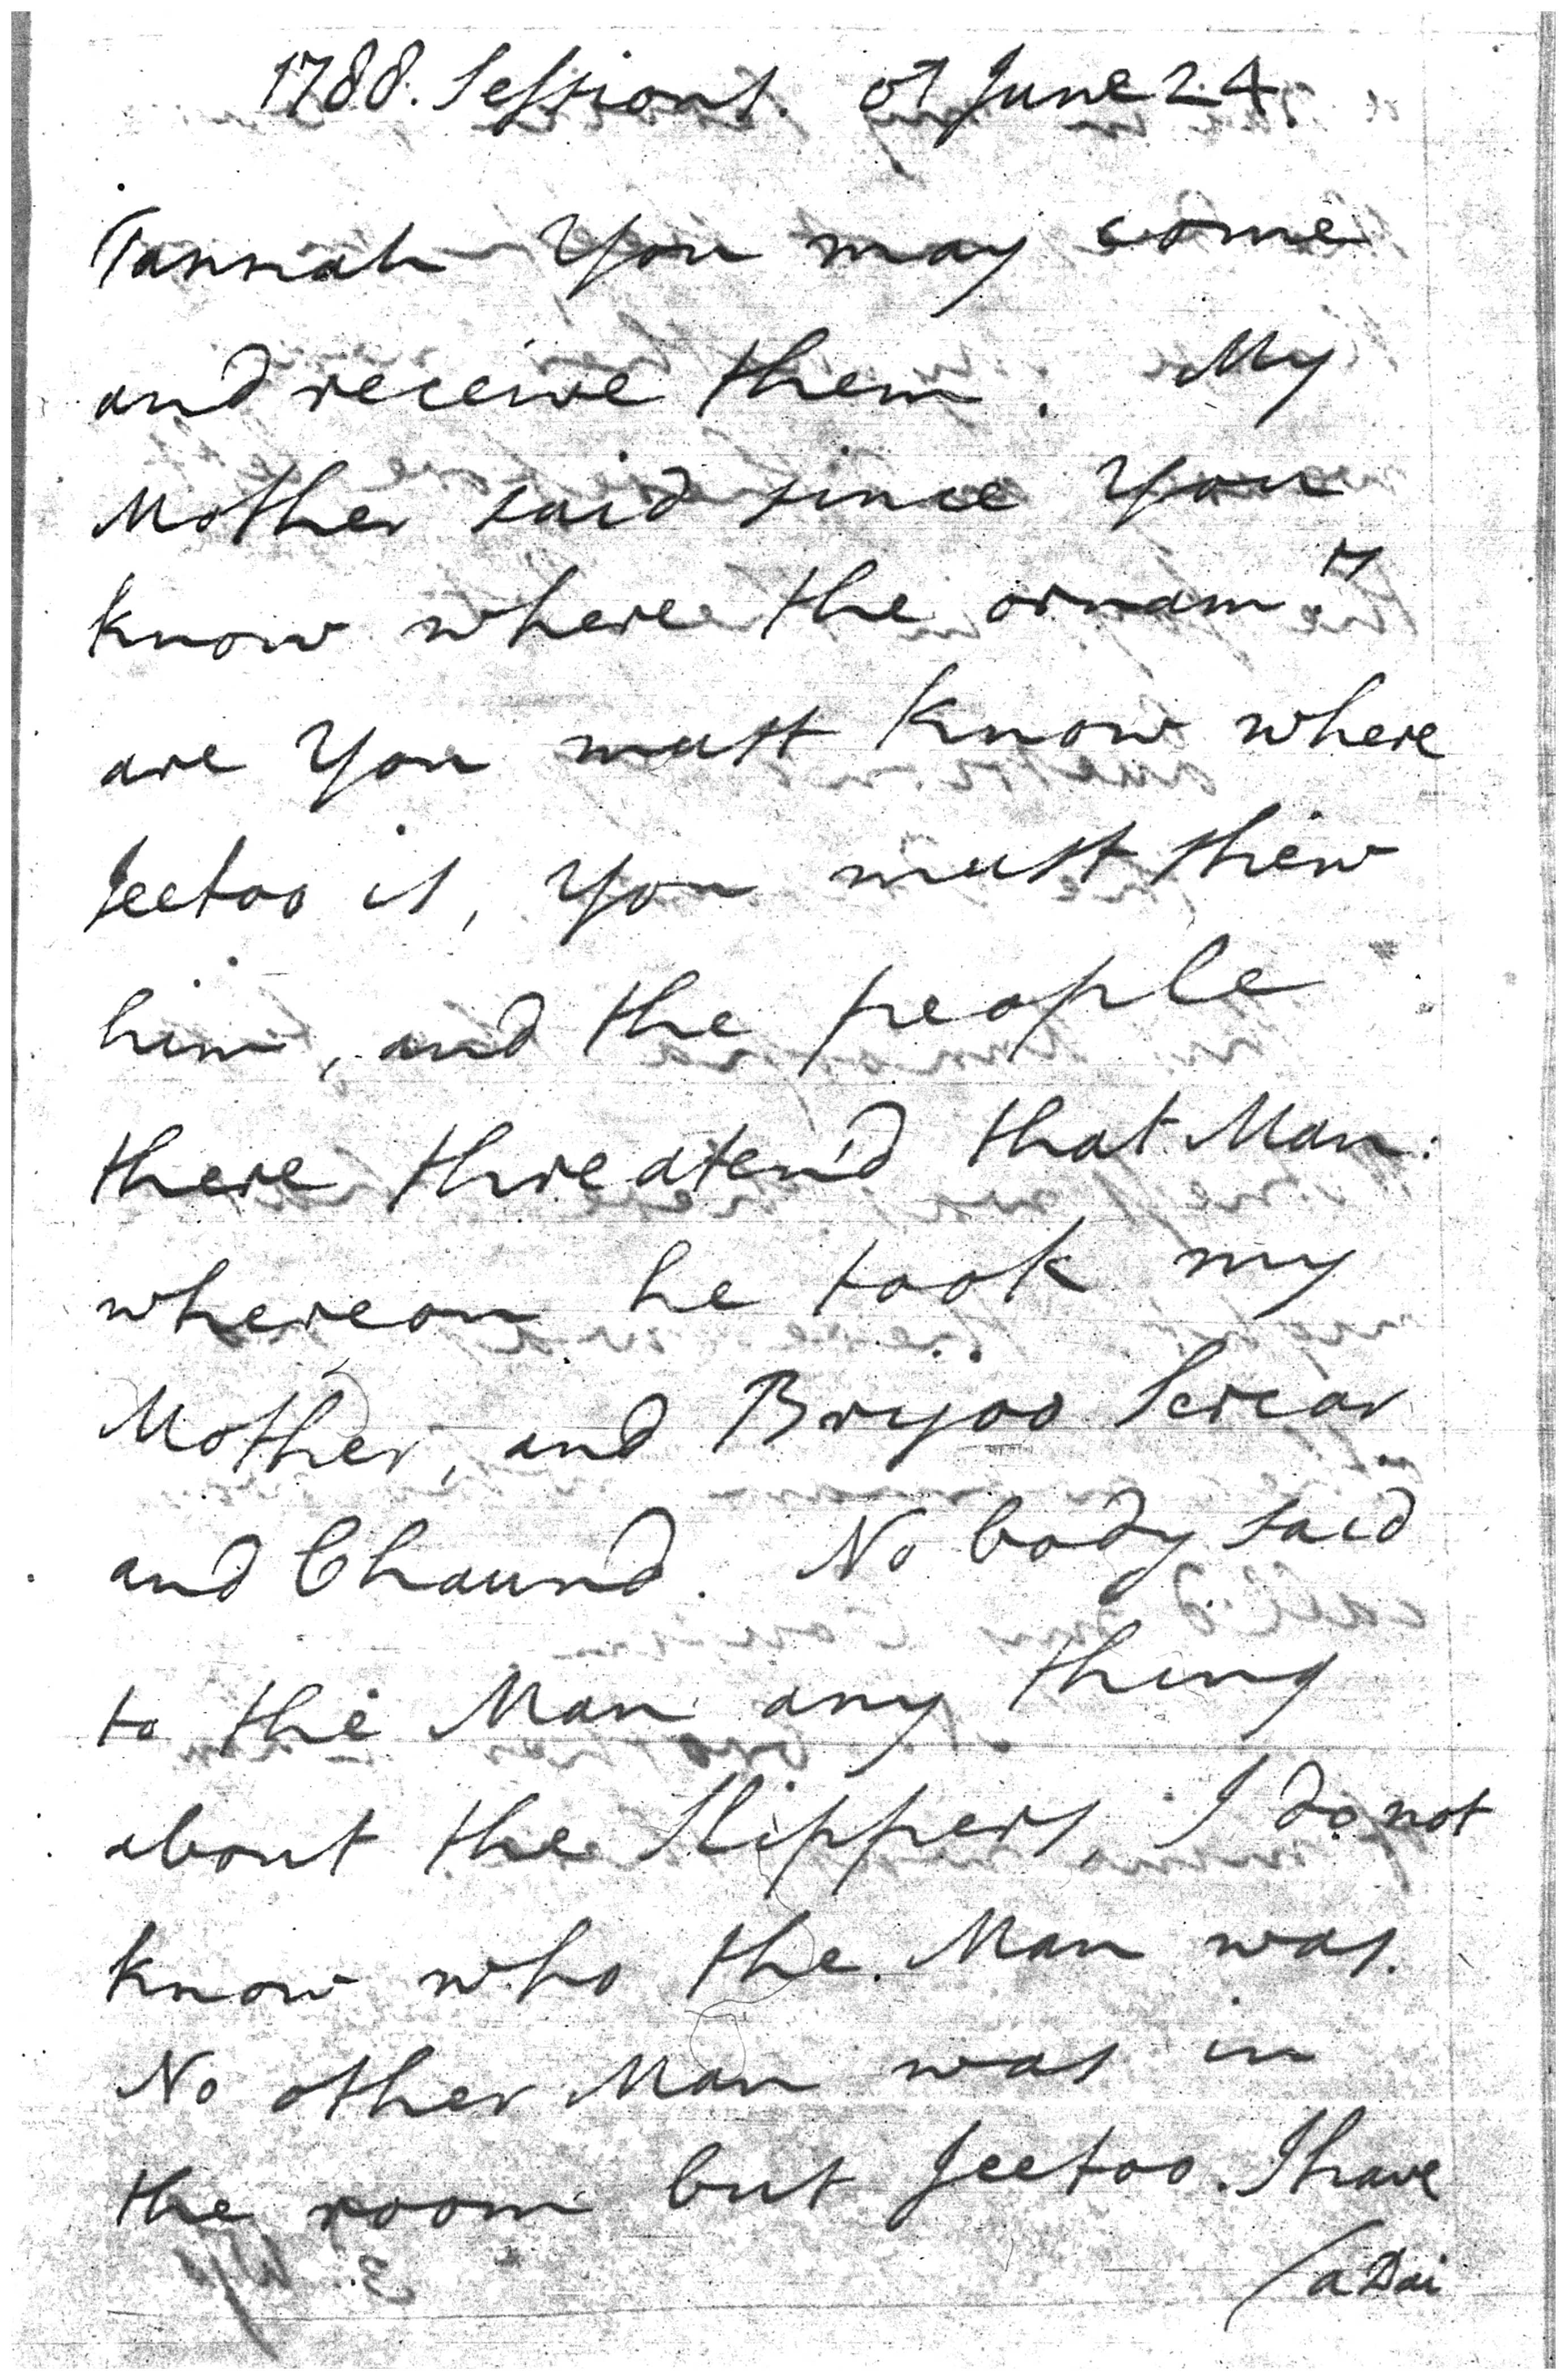 1788. Sessions. of June 24
Tannah you may come
and receive them. My
Mother said since you
know where the ornamts
are you must know where
Jeetoo is, you must shew
him, and the people
there threaten'd that Man:
whereon he took my
Mother, and Bryjoo Sircar
and Chaund. No body said
to the Man any thing
about the Slippers, I do not
know who the Man was.
No other Man was in
the room but Jeetoo. I have
(a Dai